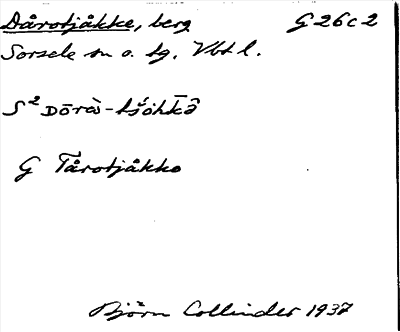 Dårotjåkke, berg G 26 c 2
Sorsele sn o. tg. Vbt l.
S² Dōrə̀-
G Tårotjåkko
Björn Collinder 1937